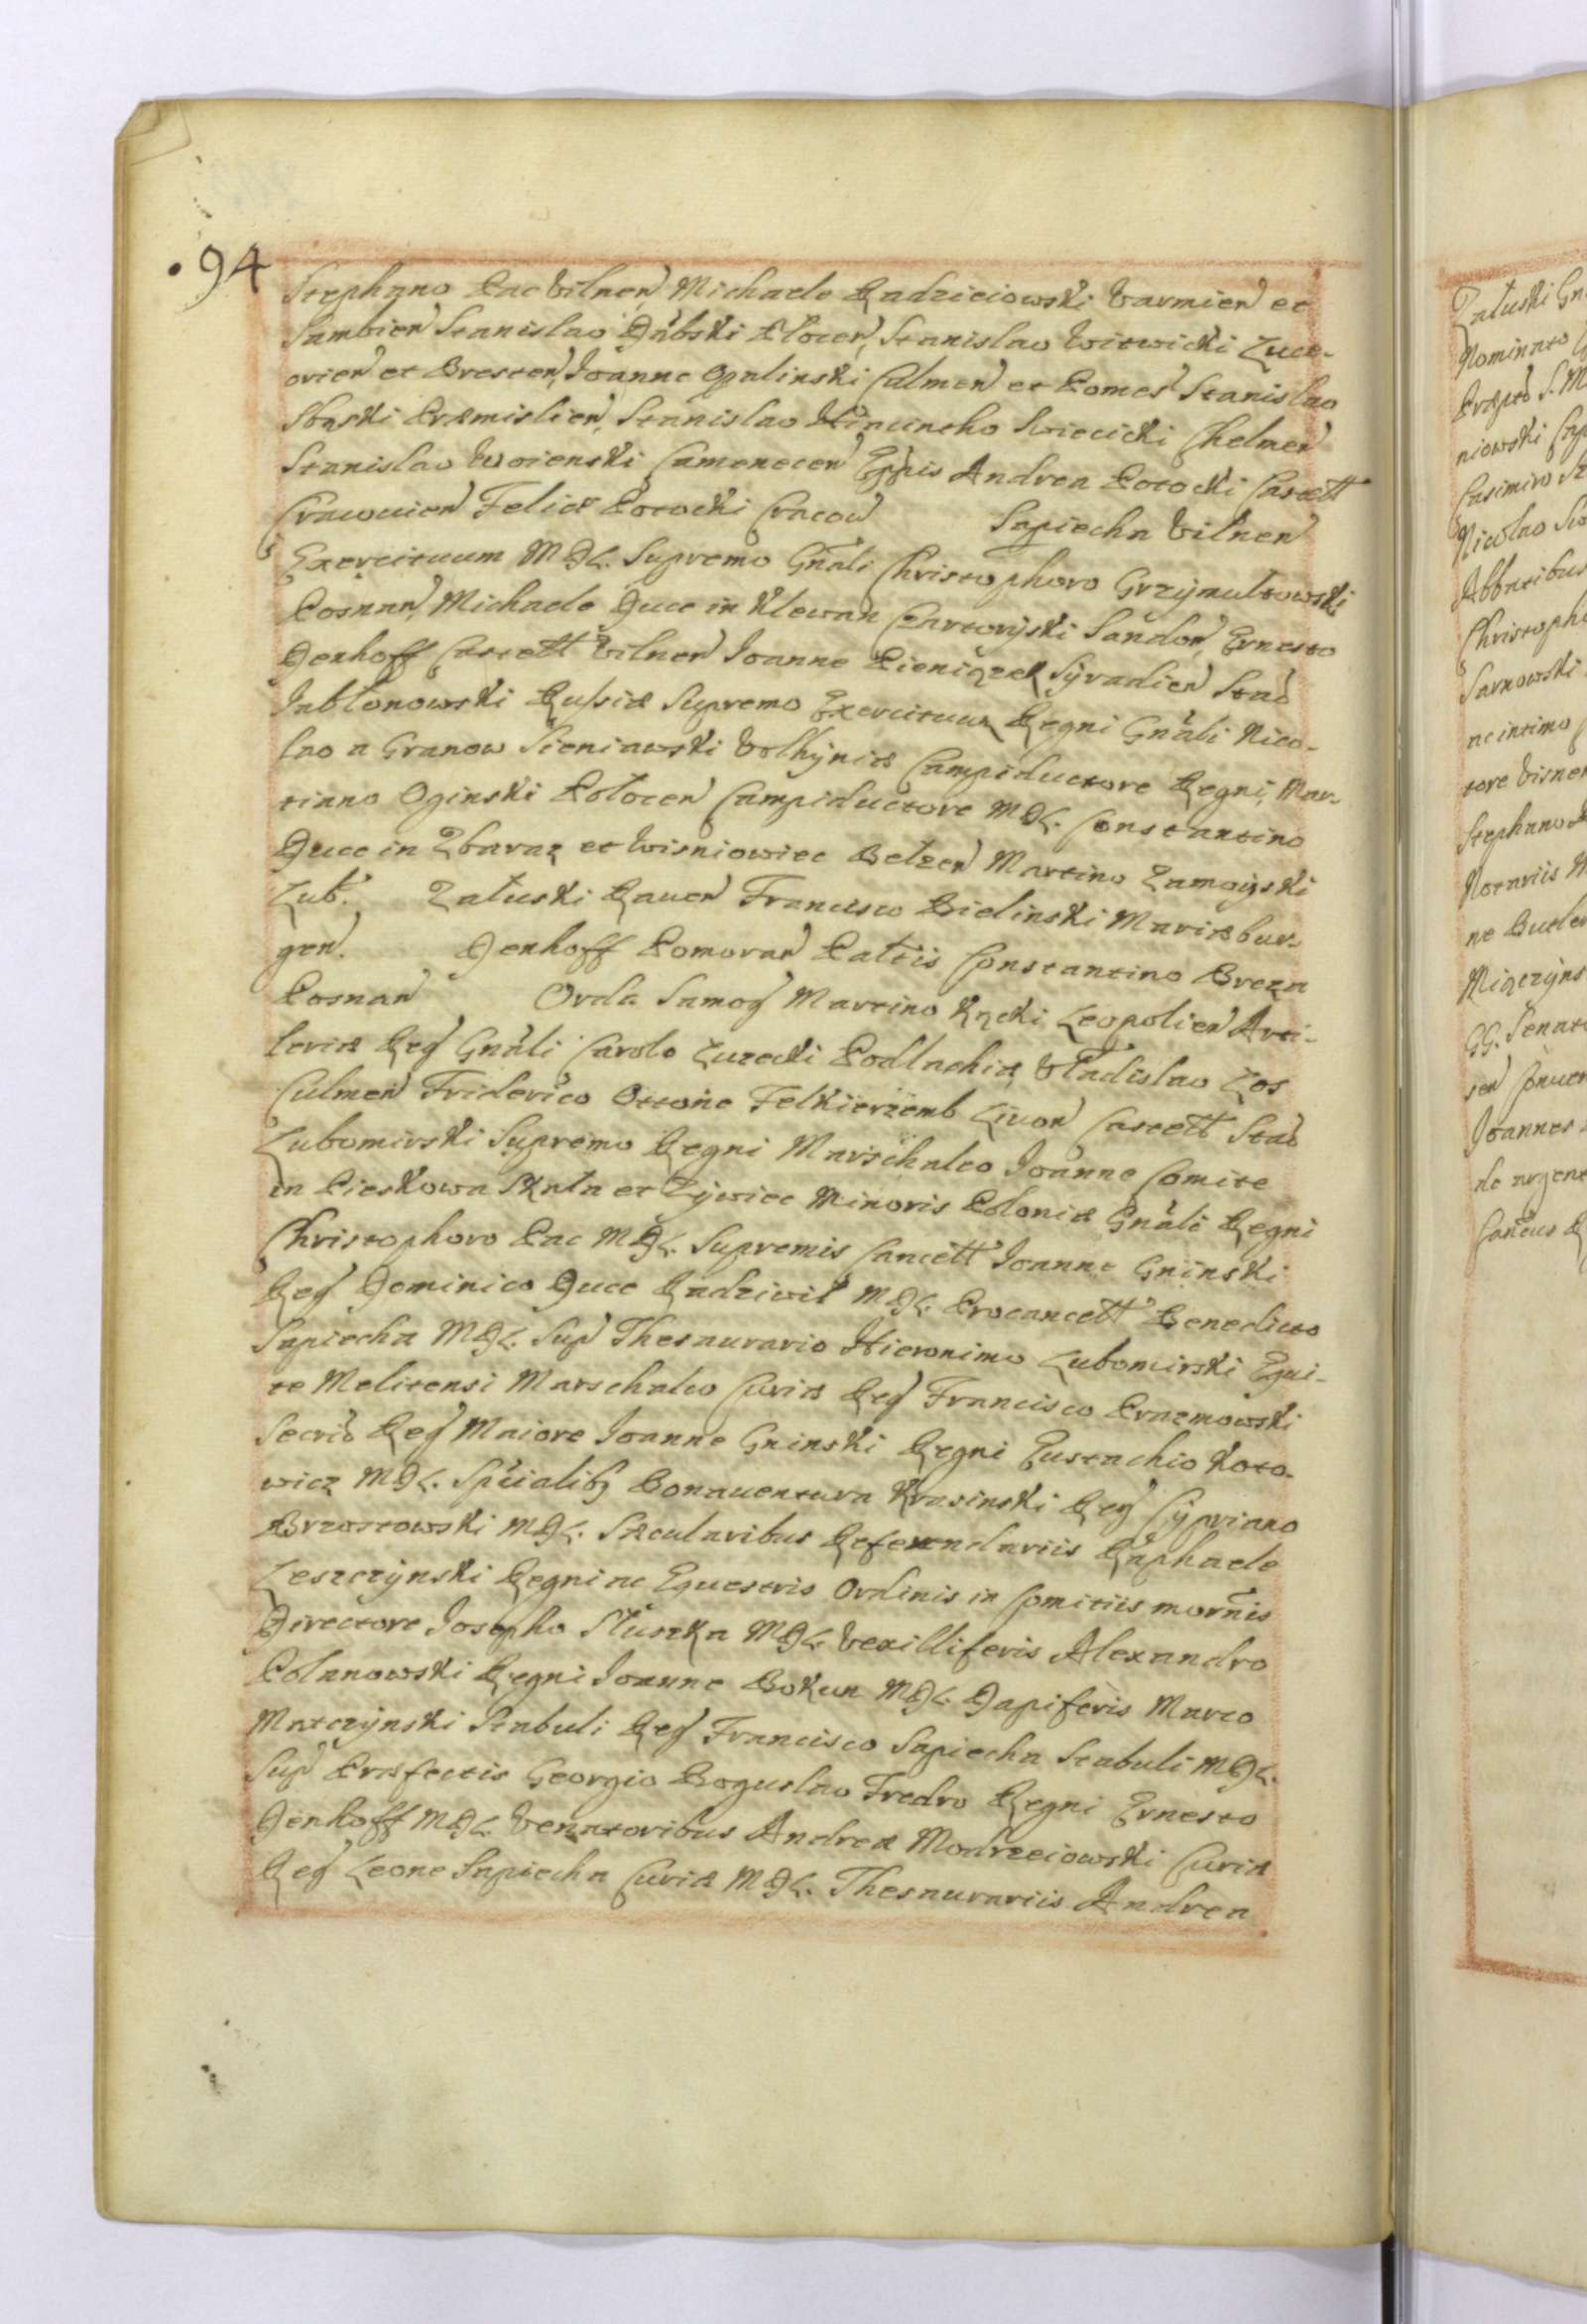 94
Stephano Pac Vilnen Michaele Radzieiowski Varmien et
Sambien Stanislao Dąbski Plocen, Stanislao Witwicki Luce-
orien et Bresten, Ioanne Opalinski Culmen et Pomes Stanislao
Sbąski Præmislien, Stanislao Hiacintho Swiecicki Chelmen
Stanislao Woienski Camenecen Eppis Andrea Potocki Castell
Cracouien Felice Potocki Cracou Sapiecha Vilnen
Exercituum MDL. Supremo Gnali Christophoro Grzymultowski
Posnan, Michaele Duce in Klewan Czartoryski Sandom Ernesto
Denhoff Castell Vilnen Ioanne Pieniązek Syradien Stan
Jabłonowski Russiæ Supremo Exercituum Regni Gnali Nico-
lao a Granow Sieniawski Volhyniæ Campiductore Regni, Mar-
tiano Oginski Polocen Campiductore MDL. Constantino
Duce in Zbaraz et Wisniowiec Belzen Martino Zamoyski
Lub. Załuski Raven Francisco Bielinski Mariæbur-
gen. Denhoff Pomoran Paltis Constantino Breza
Posnan Orda Samog Martino Kącki Leopolien Arti-
leriæ Reg Gnali Carolo Luzecki Podlachiæ Vładislao Łos
Culmen Friderico Ottone Felkierzemb Livon Castell Stan
Lubomirski Supremo Regni Marschalco Ioanne Comite
in Pieskowa Skała et Zywiec Minoris Poloniæ Gnali Regni
Christophoro Pac MDL. Supremis Cancell Ioanne Gninski
Reg Dominico Duce Radziwił MDL. Procancell Benedicto
Sapiecha MDL. Sup Thesaurario Hieronimo Lubomirski Equi-
te Melitensi Marschalco Curiæ Reg Francisco Prazmowski
Secrio Reg Maiore Ioanne Gninski Regni Eustachio Koto-
wicz MDL. Spũalibq Bonauentura Krasinski Reg Cypriano
Brzostowski MDL. Sæcularibus Referendariis Raphaele
Leszczynski Regni ac Equestris Ordinis in Comitiis mornis
Directore Iosepho Słuszka MDL. Vexilliferis Alexandro
Polanowski Regni Ioanne Bokun MDL. Dapiferis Marco
Matczynski Stabuli Reg Francisco Sapiecha Stabuli MDL.
Sup Præfectis Georgio Boguslao Fredro Regni Ernesto
Denhoff MDL. Venatoribus Andrea Modrzeiowski Curiæ
Reg Leone Sapiecha Curiæ MDL. Thesaurariis Andrea